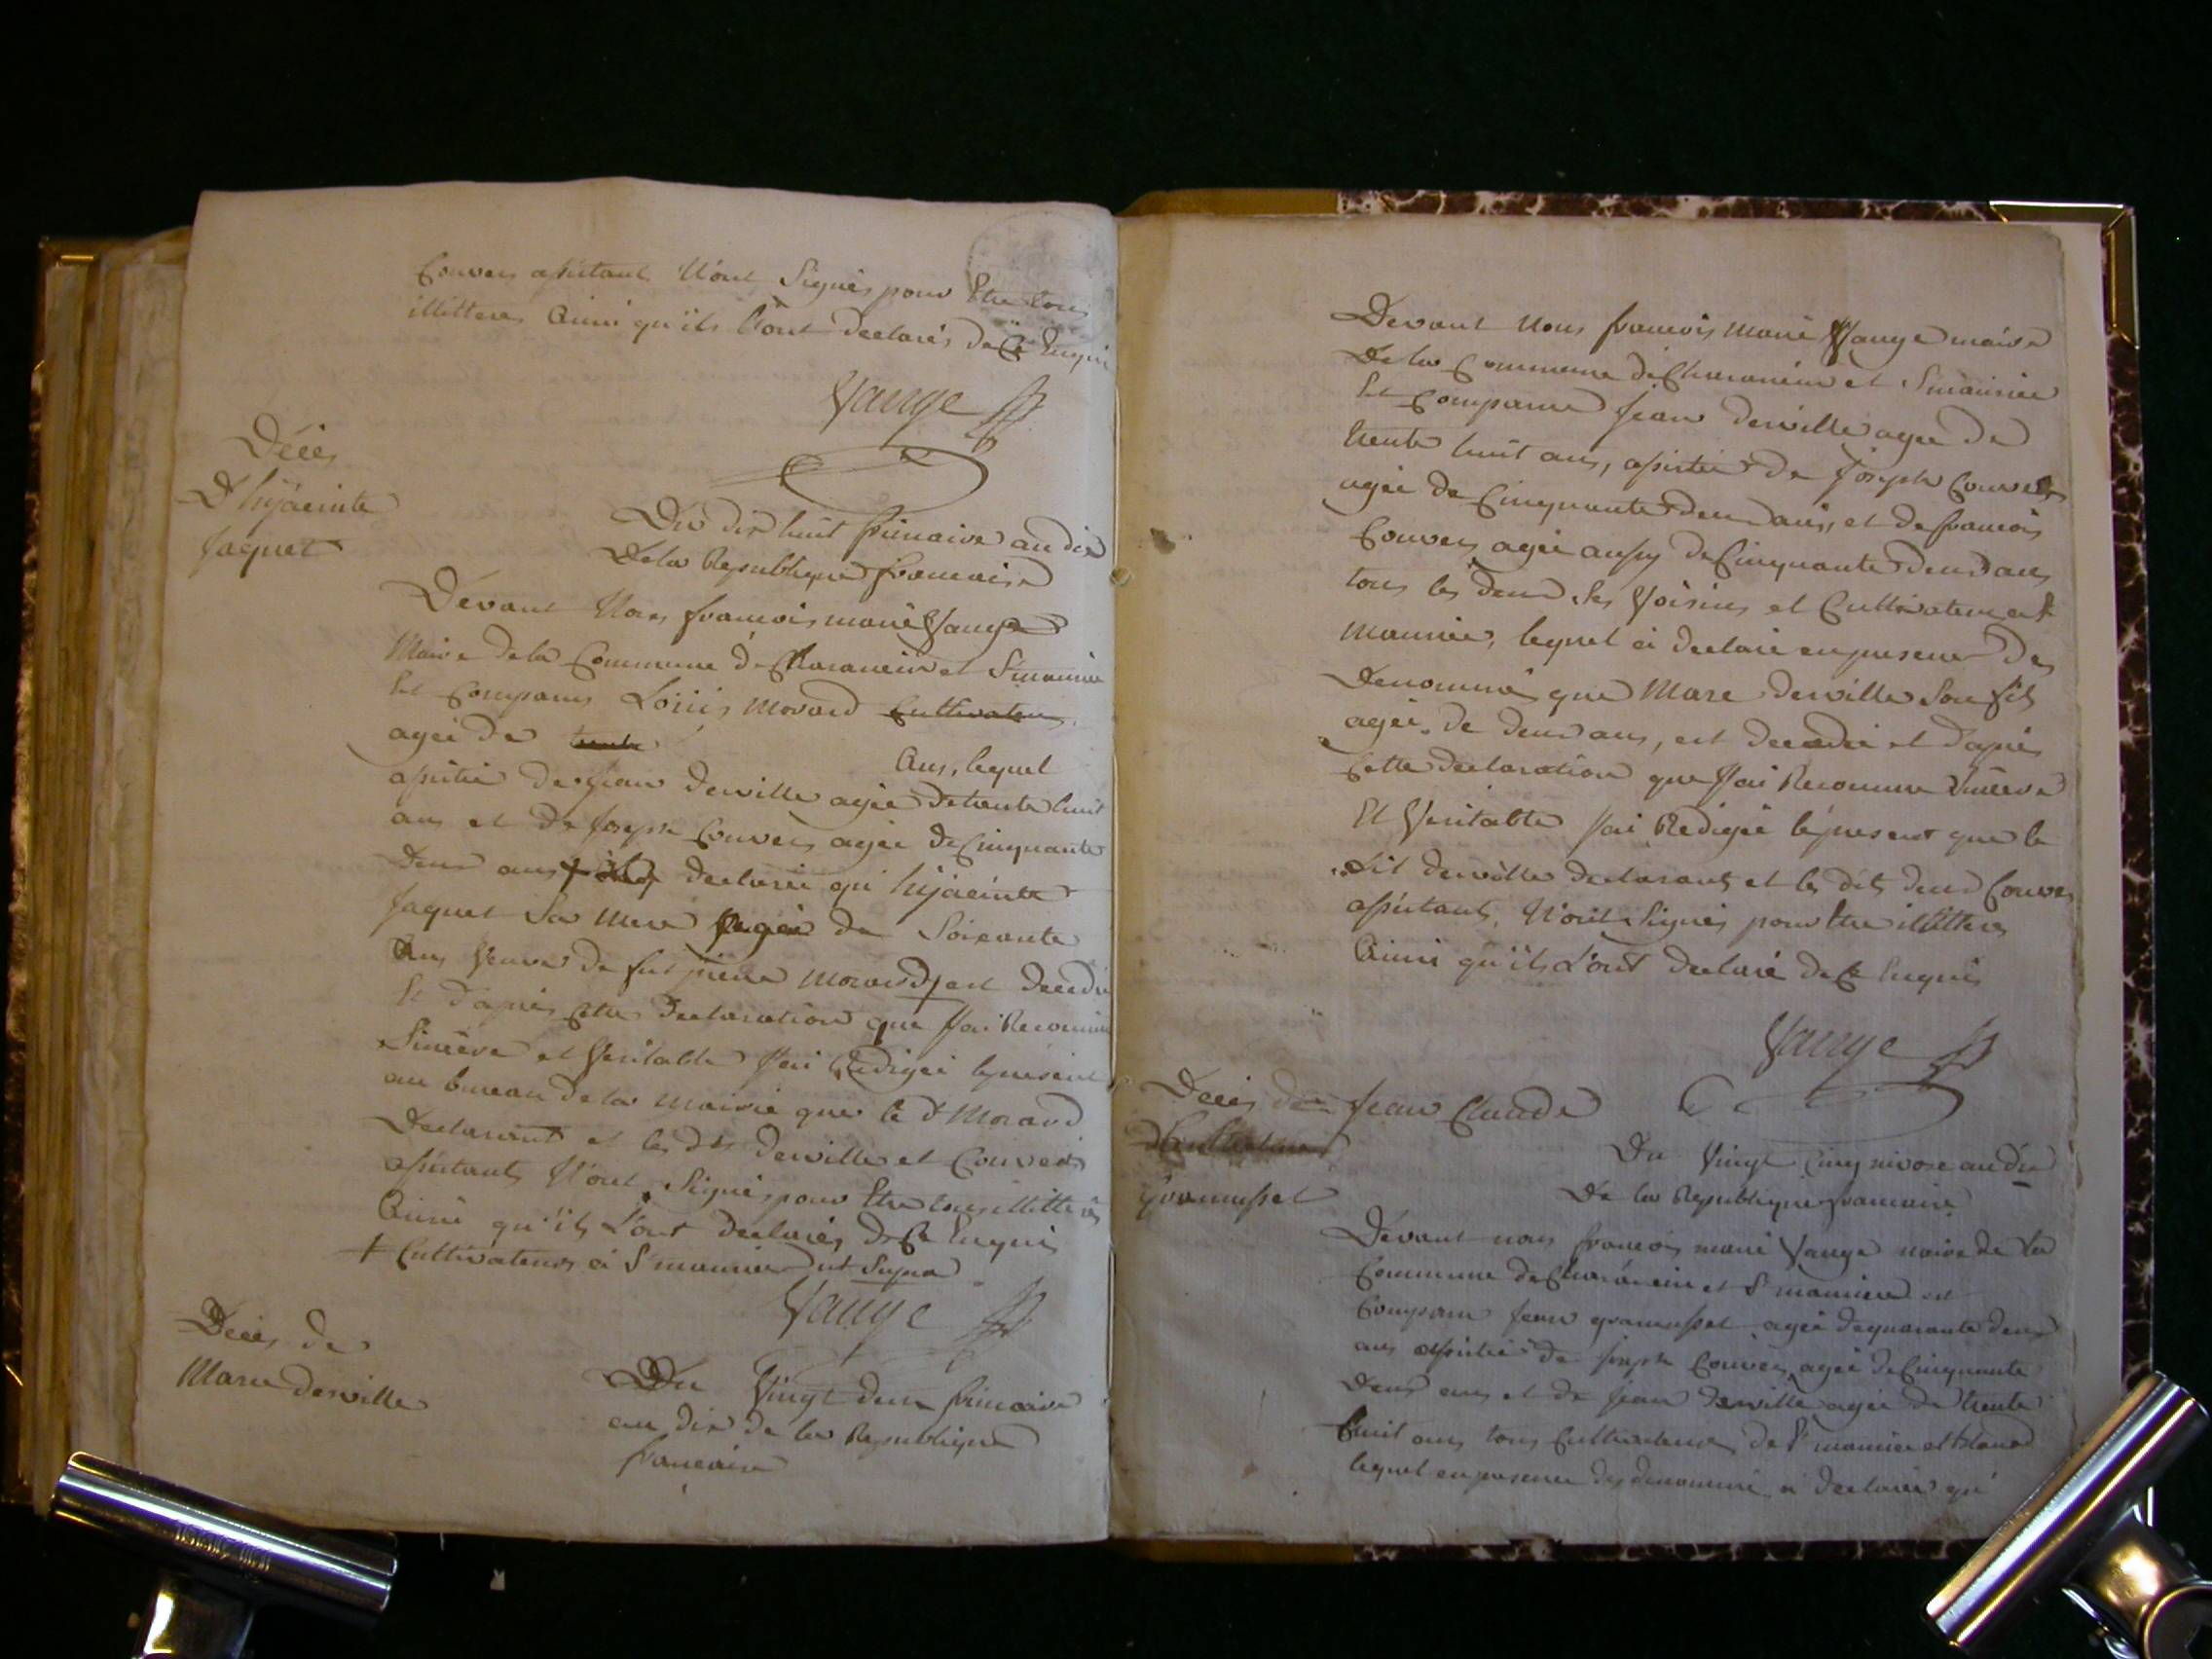 Couvers assistant N'ont Signés pour Etre tous
illitteres Ainsi qu'ils L'ont declarés de Ce Enquis
Vauge
Décés
D'hijacinte
Jaquet
Du dix huit frimaire an dix
De la Republique francaise
Dévant Nous francois marie Vauge
Maire de la Commune de Charancin et St maurice
Est Comparus Loüis Morard Cultivateur
agée de trente
Ans, lequel
assistée de Jean Derville agée de trente huit
ans et de Joseph Couvers agée de Cinquante
Deux ans + declarée qu'hijacinte
Jaquet Sa Mere agée de Soixante
Ans Veuve de fut pierre Morard est decedée
Et D'aprés cette Declaration que J'ai Reconnue
Sincère et Veritable J'ai Redigée le présent
au bureau de la Mairie que le dt Morard
Declarant et les dts Derville et Couvers
assistants N'ont Signés pour Etre tous illitterés
Ainsi qu'ils L'ont declarés de Ce Enquis
+ Cultivateurs à St maurice ut Supra
Vauge
Décés de
Marc derville
Du Vingt deux frimaire
an dix de la Republique
francaise
Devant Nous francois Marie Vauge maire
De la Commune de Charancin et St maurice
Est Comparue Jean Derville agée de
trente huit ans, assistée de Joseph Couvers
agée de Cinquante deux ans, et de francois
Couvers agée aussy de Cinquante deux ans
tous les deux Ses Voisins et Cultivateurs a St
Maurice, lequel à declaré en presence des
Denommé que Marc derville Son fils
agée de deux ans, est decedée et d'aprés
Cette declaration que J'ai Reconnue Sincère
Et Veritable J'ai Redigée le présent que le
dit derville declarant et les dits deux Couvers
assistants, N'ont Signés pour Etre illitteres
Ainsi qu'ils L'ont declaré de Ce Enquis
Vauge
Décés de Jean Claude
gramusset
Du Vingt Cinq nivose an dix
De la Republique francaise
Dévant nous francois marie Vauge maire de la
Commune de Charancin et St maurice est
Comparue Jean gramusset agée de quarante deux
ans assistée de Joseph Couvers agée de Cinquante
Deux ans et de Jean derville agée de trente
huit ans tous Cultivateurs de St maurice
lequel en presence des denommé a declarée qu'